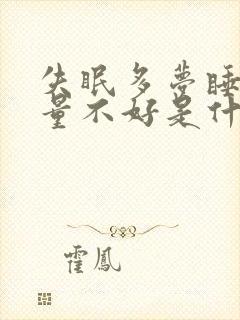 失眠多夢睡
量不好是什
霍鳳